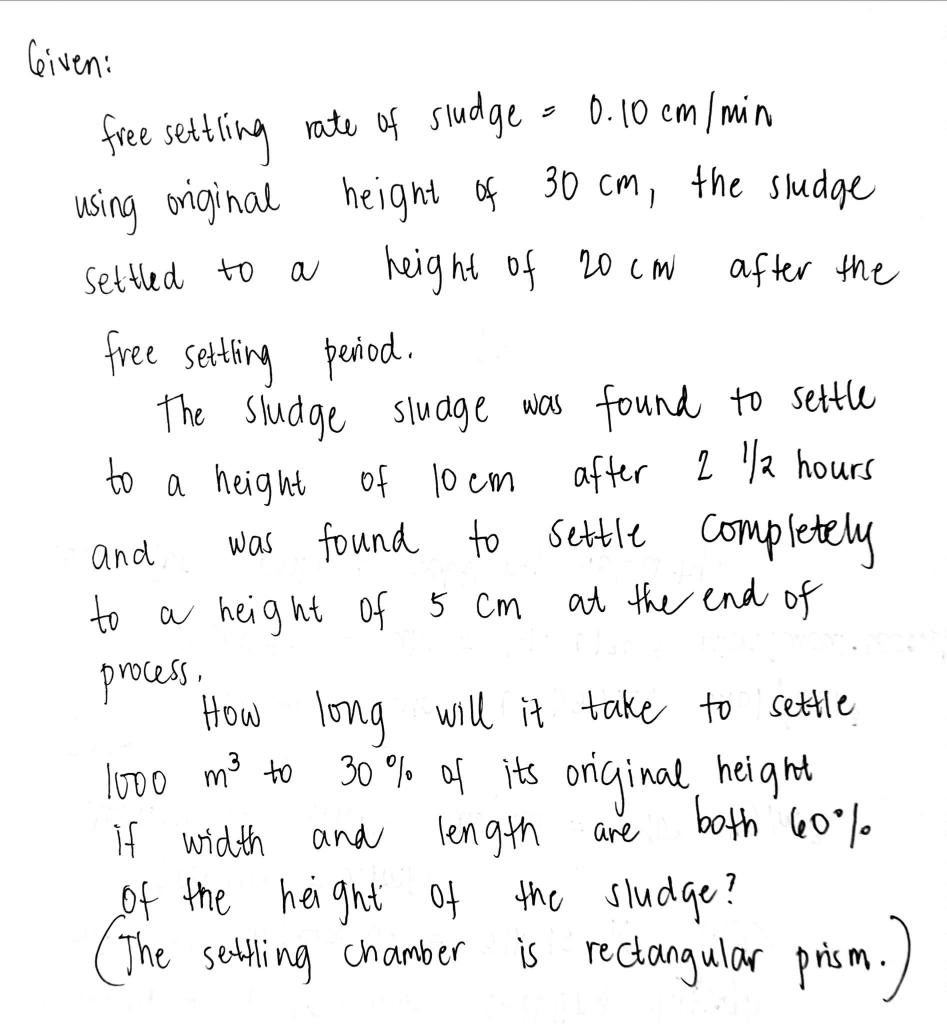 Given:
free settling rate of sludge = 0.10 cm/min
using original height of 30 cm, the sludge
settled to a height of 20 cm after the
free settling period.
The sludge sludge was found to settle
to a height of 10 cm after 2 1/2 hours
and was found to settle completely
to a height of 5 cm at the end of
process.
How long will it take to settle
1000 m³ to 30% of its original height
if width and length are both 60%
of the height of the sludge?
(The settling chamber is rectangular prism.)